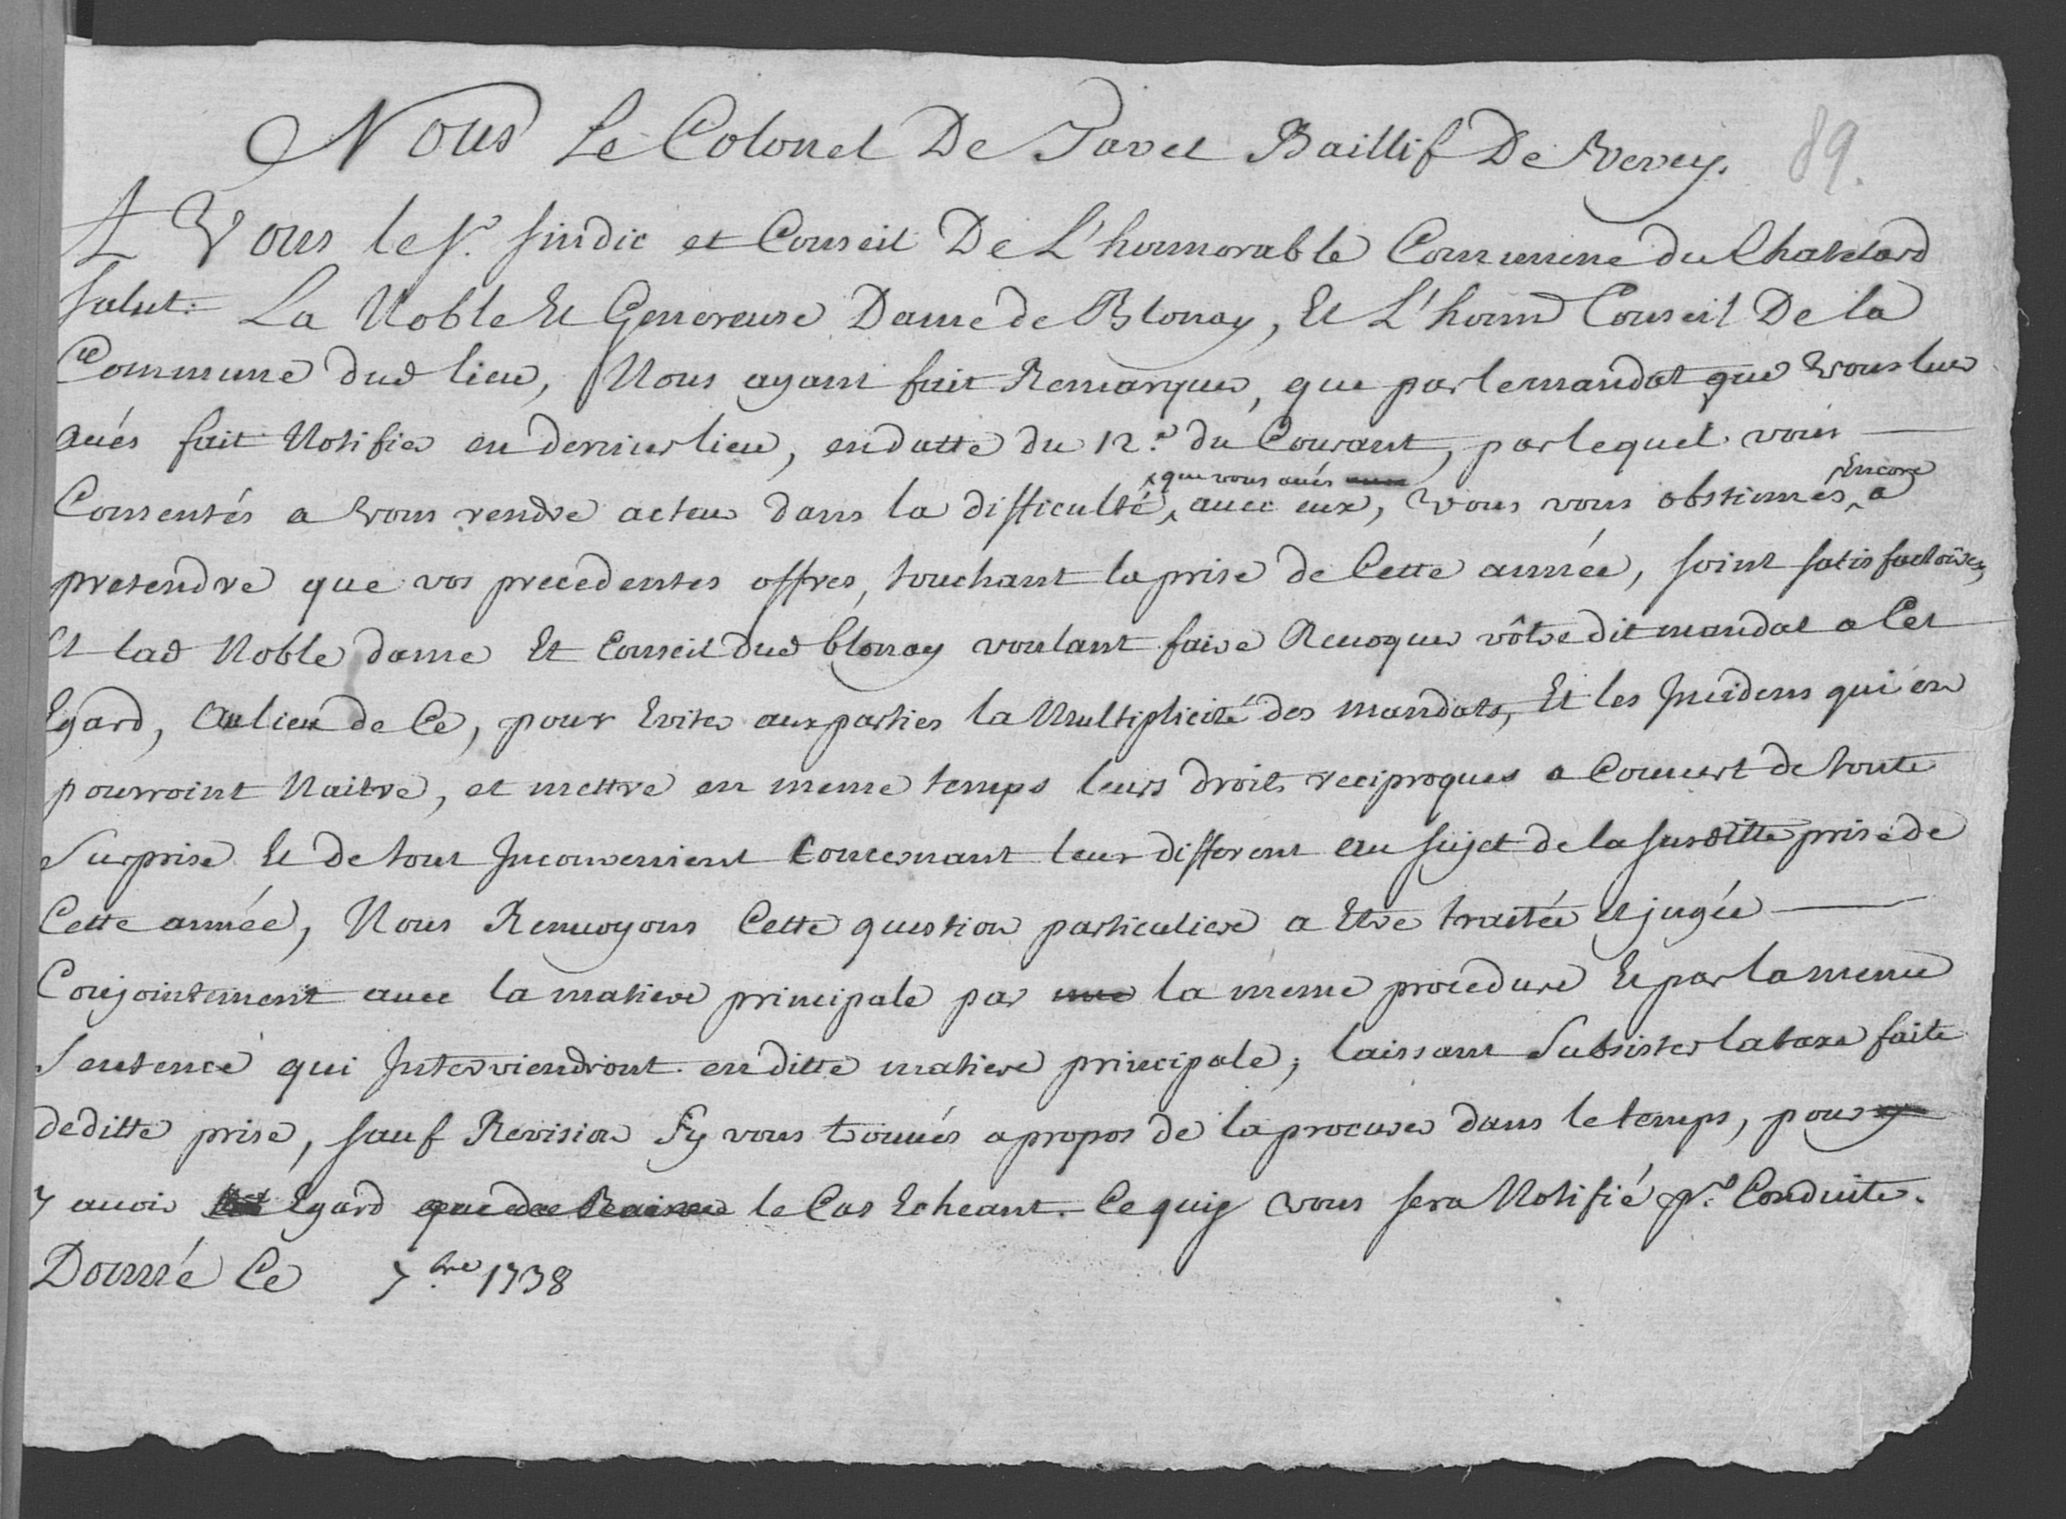 Nous Le Colonel De Tavel Baillif De Vevey.
89.
A Vous le Sr. Sindic et Conseil De L'honnorable Commune du Chatelard
Salut: La Noble Et Genereuse Dame de Blonay, Et L'honnd Conseil De la
Commune dud lieu, Nous ayant fait Remarquer, que par le mandat que vous leur
avés fait Notifier en dernier lieu, en datte du 12.e du Courant, par lequel vous
que vous avés
Encore
Consentés a vous rendre acteur dans la difficulté, avec eux, vous vous obstinés a
pretendre que vos precedentes offres, touchant la prise de Cette année, soint satisfactoires,
Et lad Noble dame Et Conseil dud blonay voulant faire Revoquer vôtre dit mandat a Cet
Egard, Au lieu de Ce, pour Eviter aux parties la Multiplicité des mandats, Et les Incidens qui en
pourroint Naitre, et mettre en meme temps leurs droits reciproques a Couvert de toute
Surprise Et de tout Inconvenient Concernant leur different au sujet de la susditte prise de
Cette année, Nous Renvoyons Cette question particuliere a Etre traitée et jugée
Conjointement avec la matiere principale par la même procedure Et par la meme
Sentence qui Interviendront en ditte matiere principale; laissant Subsister la taxe faite
de ditte prise, sauf Revision Sy vous trouvés apropos de la procurer dans le temps, pour
y avoir Egard le Cas Echeant. Ce qui vous sera Notifié pr. Conduite.
Donné Ce 7bre 1738